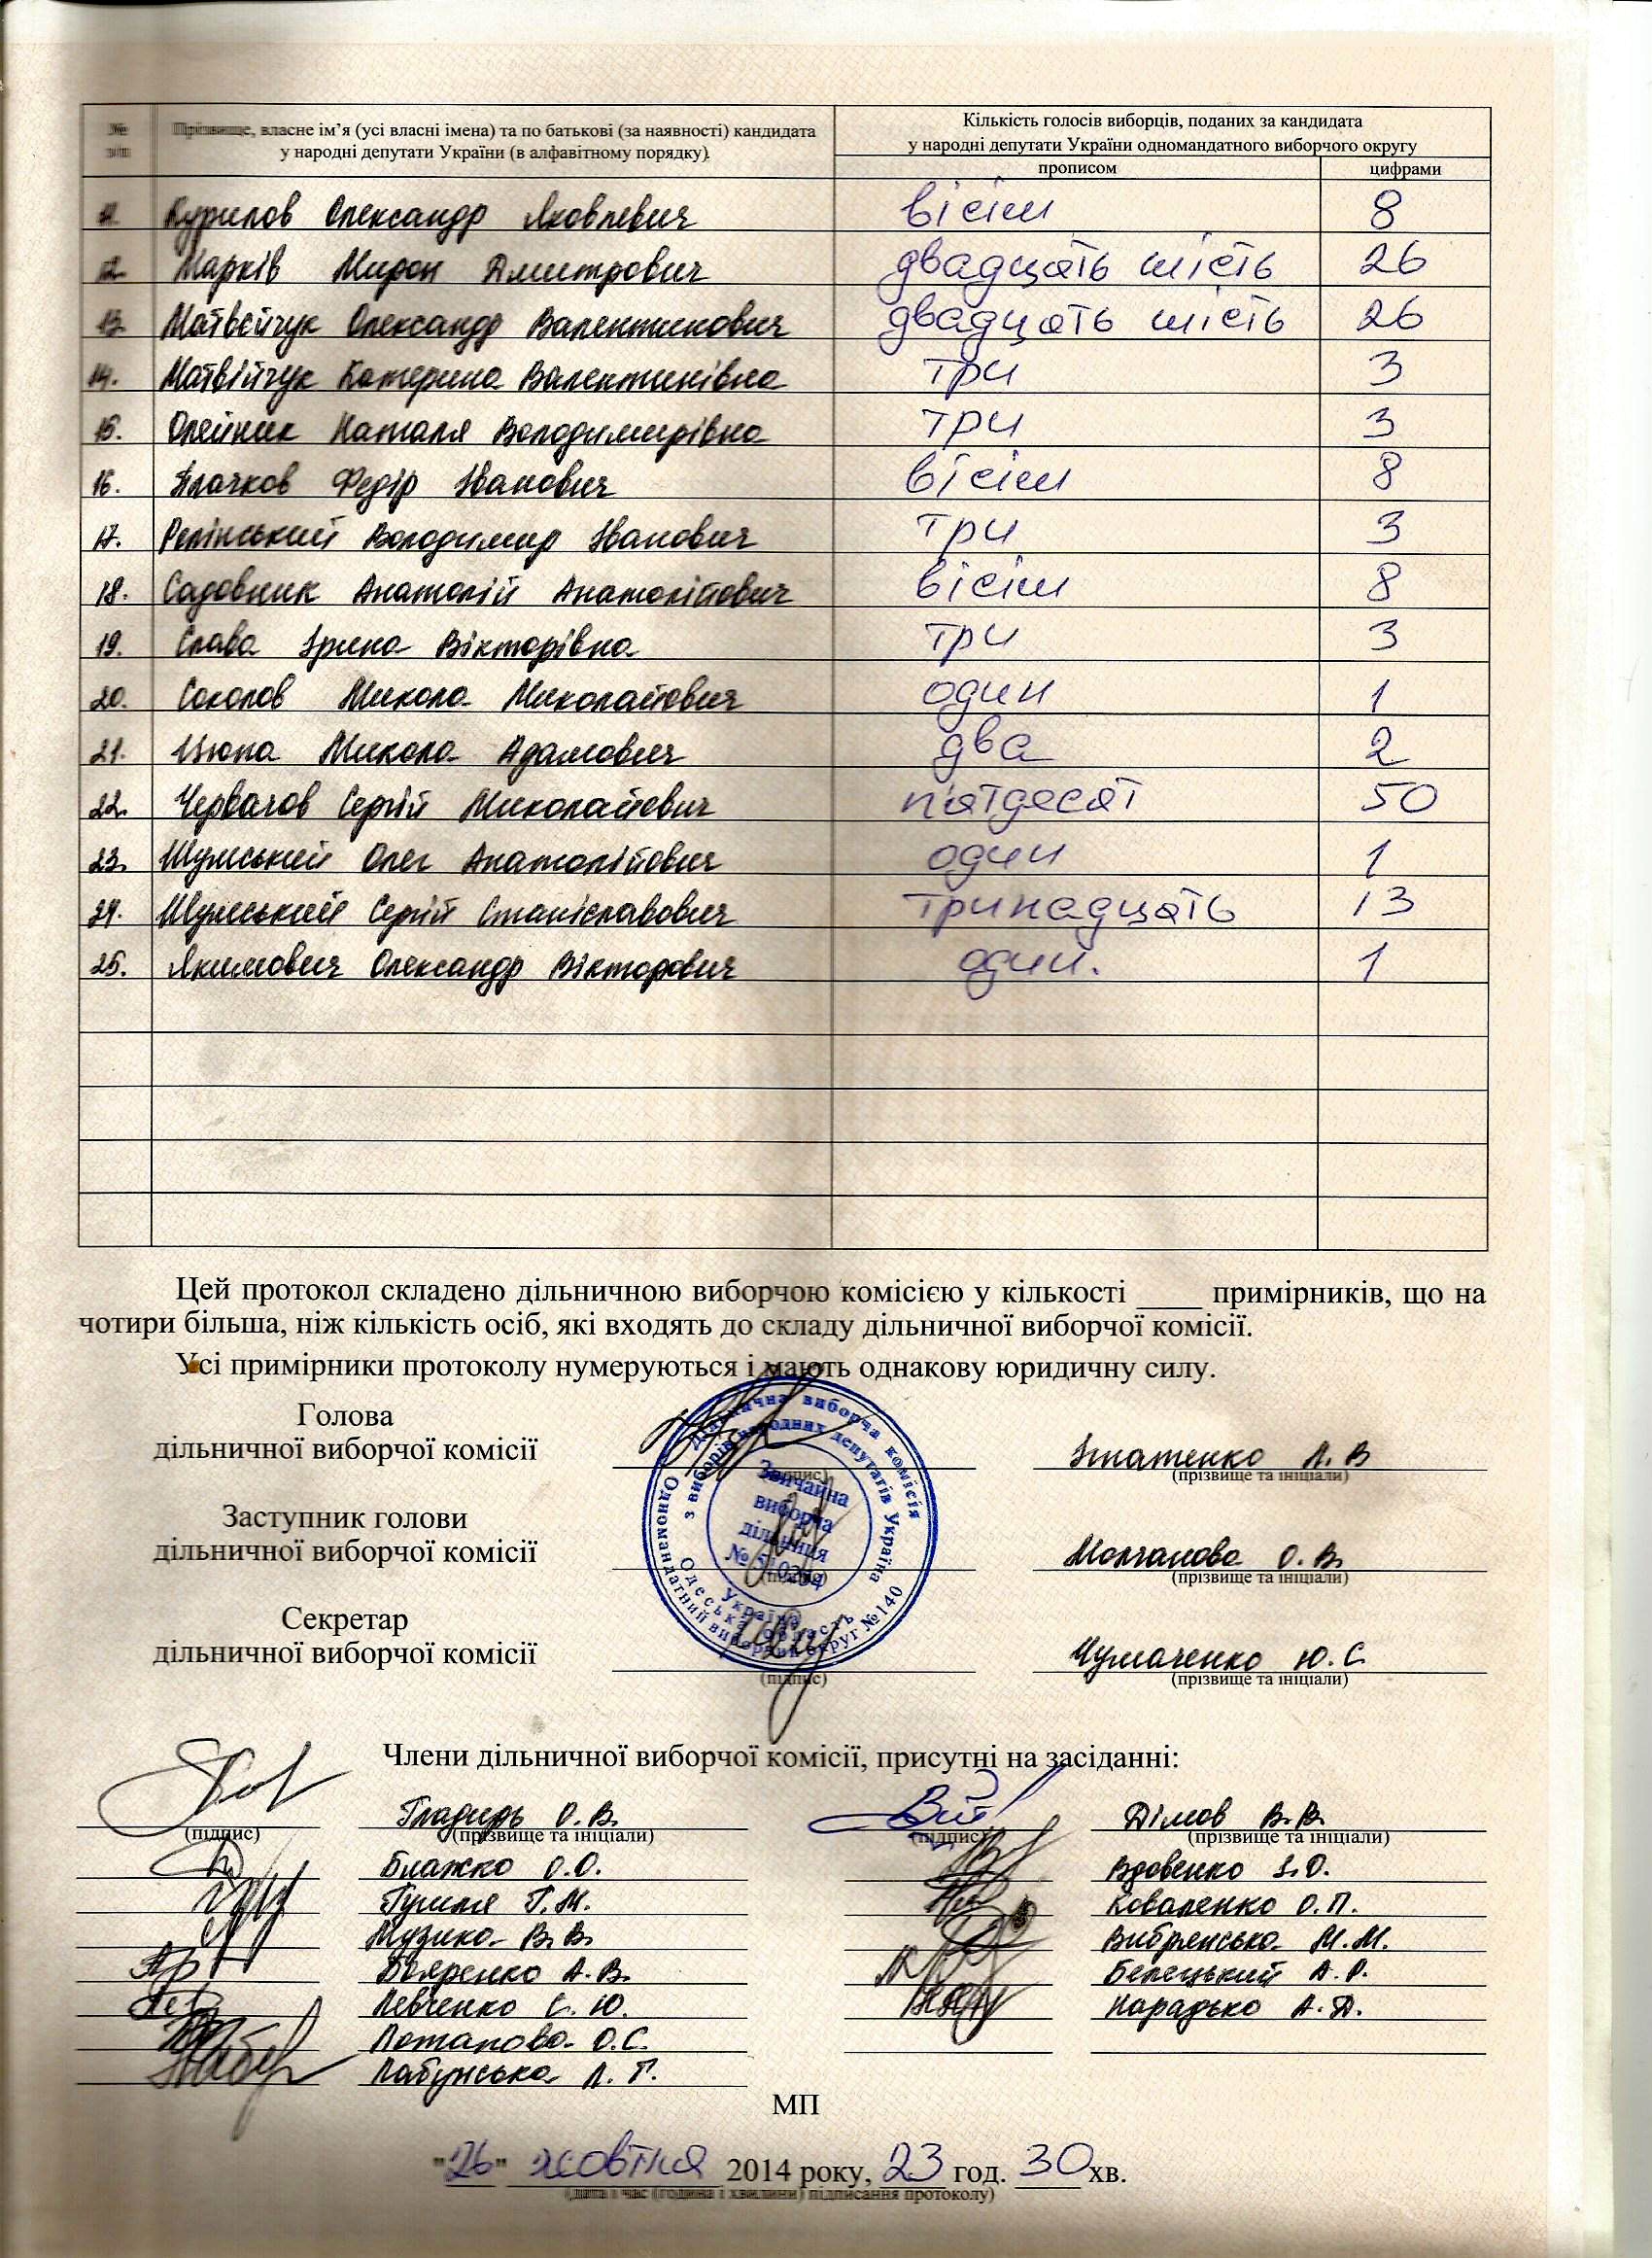 № Прізвище, власне ім’я (усі власні імена) та по батькові (за наявності) кандидата
з/п у народні депутати України (в алфавітному порядку)
Кількість голосів виборців, поданих за кандидата
у народні депутати України одномандатного виборчого округу
прописом цифрами
11. Курилов Олександр Яковлевич вісім 8
12. Марків Мирон Дмитрович двадцять шість 26
13. Матвєйчук Олександр Валентинович двадцять шість 26
14. Матвійчук Катерина Валентинівна три 3
15. Олейник Наталя Володимирівна три 3
16. Плачков Федір Іванович вісім 8
17. Релінський Володимир Іванович три 3
18. Садовник Анатолій Анатолійович вісім 8
19. Слава Ірина Вікторівна три 3
20. Соколов Микола Миколайович один 1
21. Цюпа Микола Адамович два 2
22. Червачов Сергій Миколайович п'ятдесят 50
23. Шумський Олег Анатолійович один 1
24. Шумський Сергій Станіславович тринадцять 13
25. Якимович Олександр Вікторович один. 1
Цей протокол складено дільничною виборчою комісією у кількості ____ примірників, що на
чотири більша, ніж кількість осіб, які входять до складу дільничної виборчої комісії.
Усі примірники протоколу нумеруються і мають однакову юридичну силу.
Голова
дільничної виборчої комісії Ігнатенко Л.В
(підпис) (прізвище та ініціали)
Заступник голови
дільничної виборчої комісії Молчанова О.В.
(підпис) (прізвище та ініціали)
Секретар
дільничної виборчої комісії Чумаченко Ю.С
(підпис) (прізвище та ініціали)
Дільнична виборча комісія
з виборів народних депутатів України
Одномандатний виборчий округ № 140
Одеська область
Україна
Звичайна
виборча
дільниця
Члени дільничної виборчої комісії, присутні на засіданні:
Гладидь О.В. Дімов В.В.
(підпис) (прізвище та ініціали) (підпис) (прізвище та ініціали)
Блажко О.О. Вдовенко І.О.
Г.М. Коваленко О.П.
Музика В.В. М.М.
Бояренко А.В. Белецький А.О.
Левченко С.Ю. Нарадько А.Д.
Потапова О.С.
Лабунська Л.Г.
МП
"26" жовтня 2014 року, 23 год. 30 хв.
(дата і час (година і хвилини) підписання протоколу)